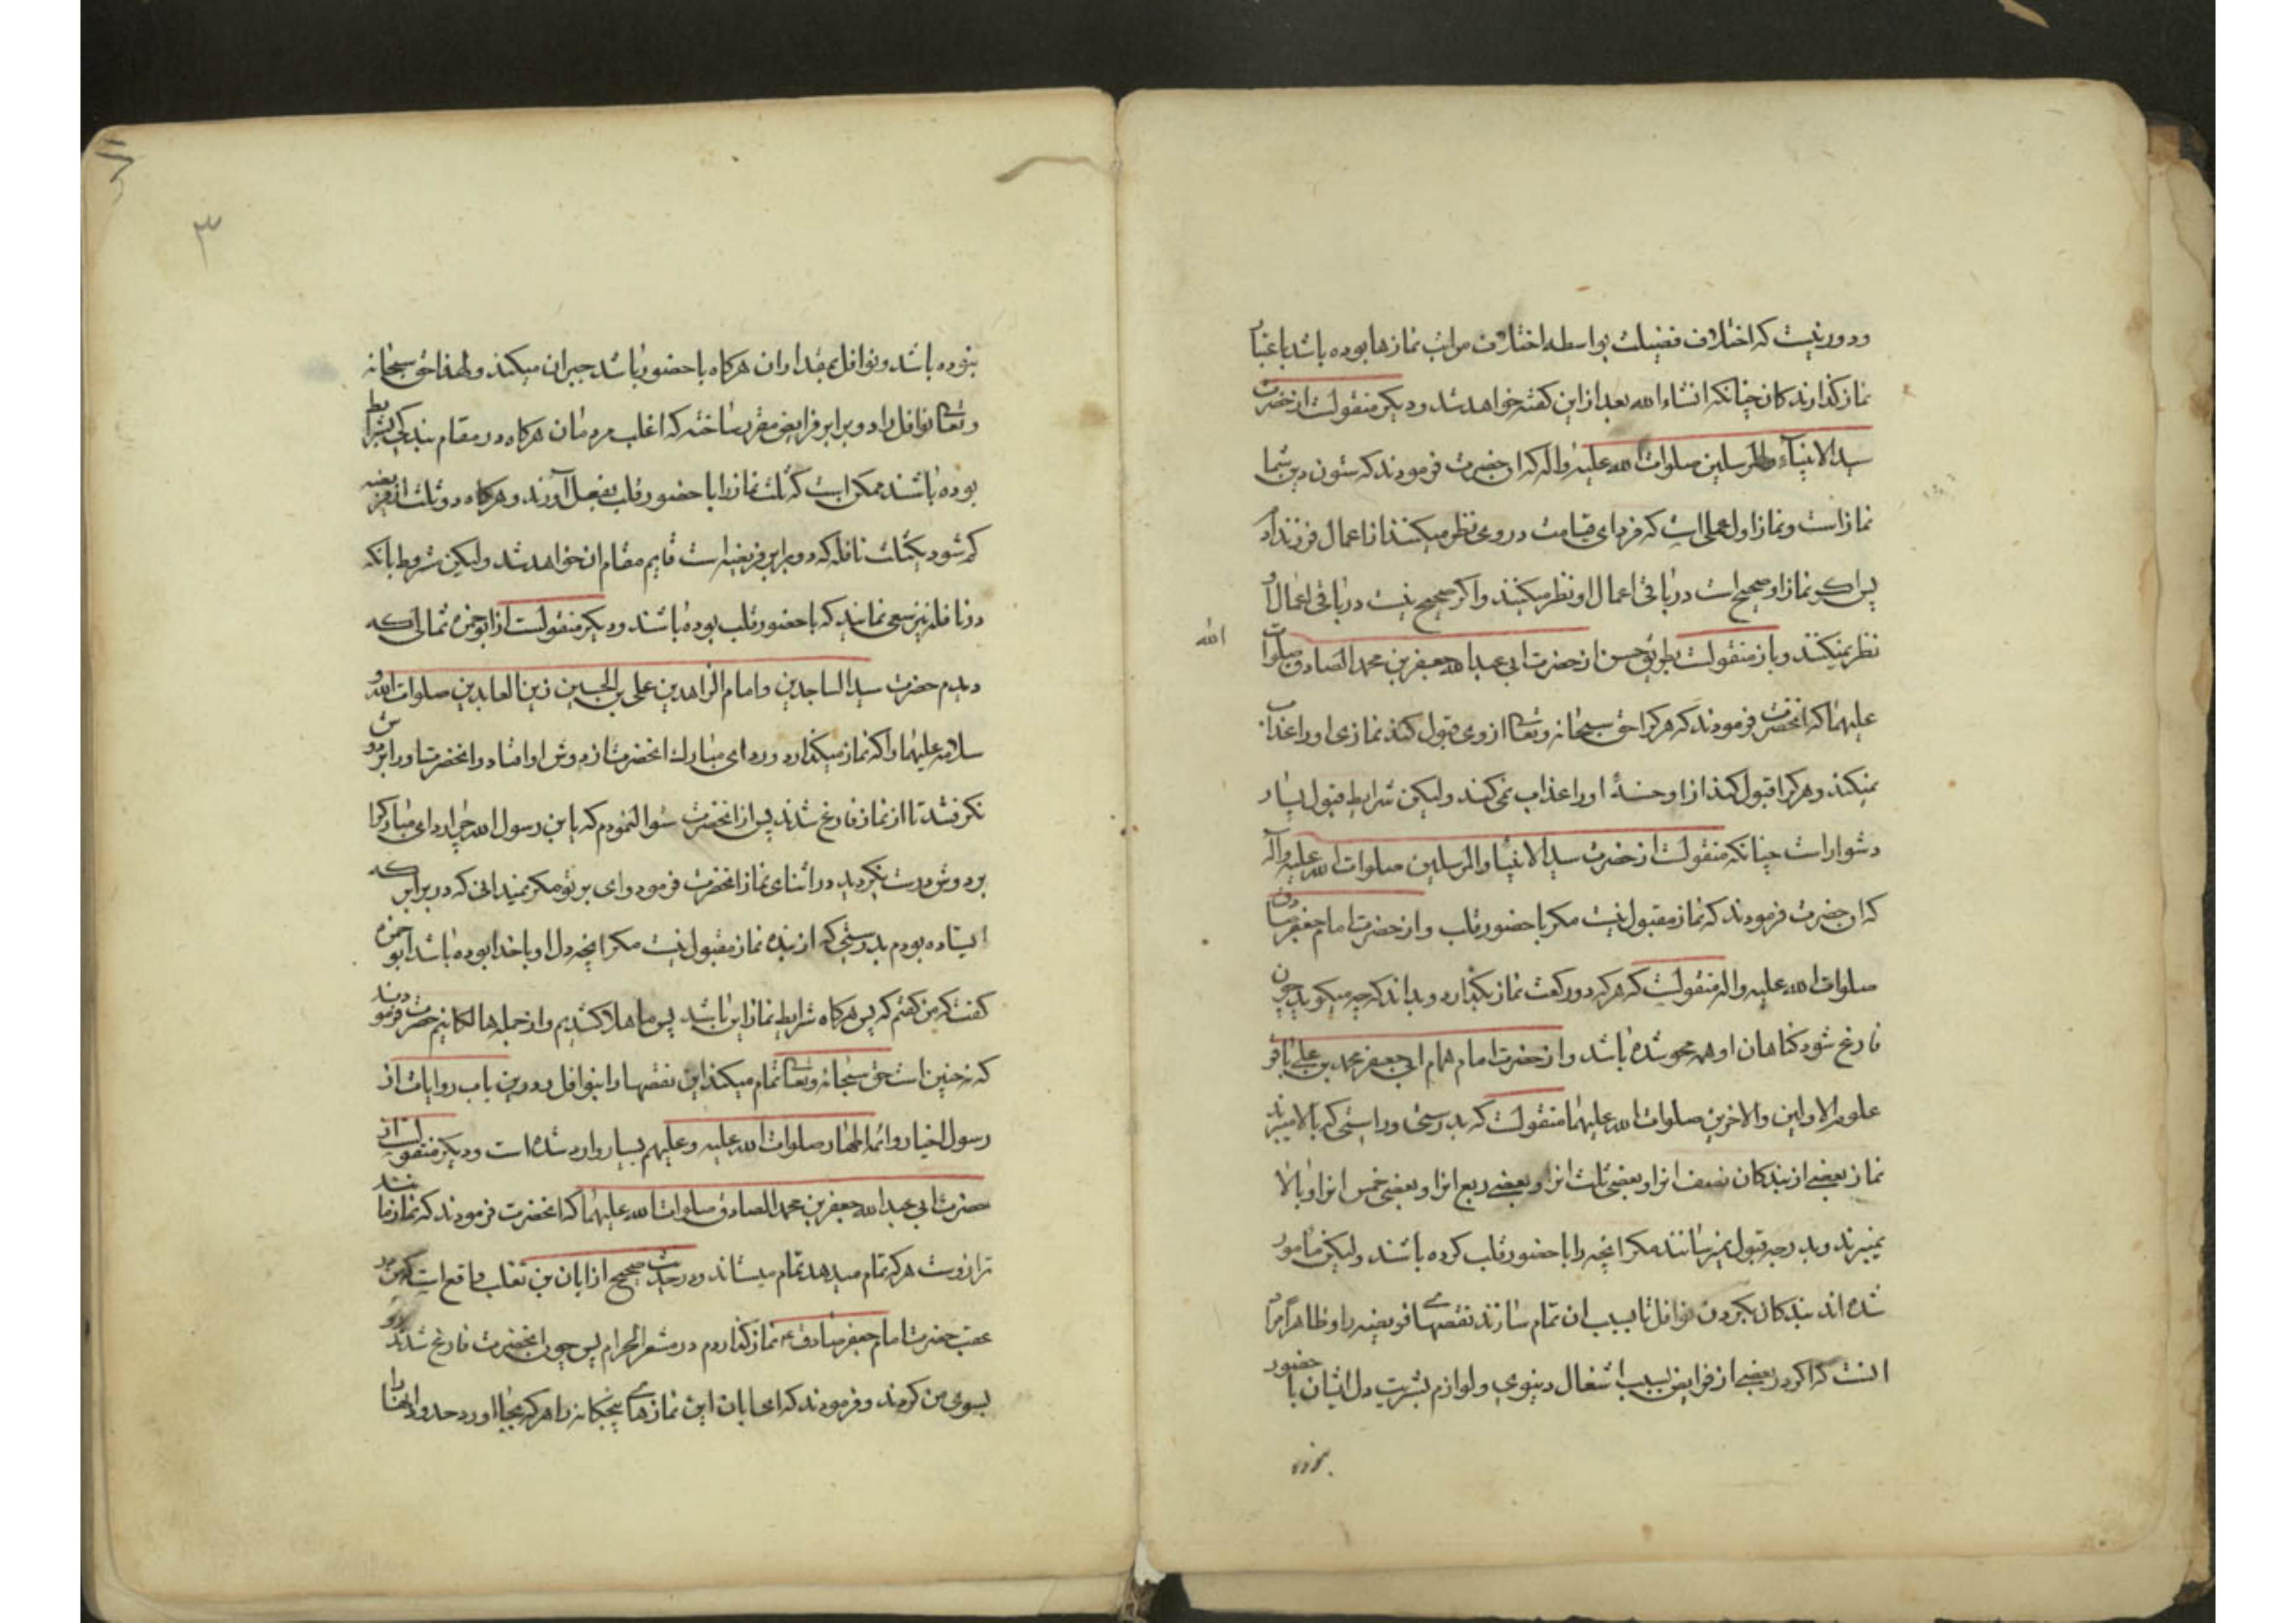 ودور نیست که اختلاف فضیلت بواسطه اختلاف مراتب نمازها بوده باشد باعتبار
نماز گذارندکان چنانکه انشاء الله بعد ازین کفته خواهد شد ودیکر منقولست از حضرت
سید الانبیآء والمرسلین صلوات الله علیه واله که ان حضرت فرمودند که ستون دین شما
نماز است ونماز اول عملی است که فردای قیامت در وی نظر میکنند از اعمال فرزند آدم
پس اکر نماز او صحیح است در باقی اعمال او نظر میکنند واکر صحیح نیست در باقی اعمال او
نظر نمیکنند وباز منقولست بطریق حسن از حضرت ابی عبد الله جعفر بن محمد الصادق صلوات
الله
علیهما که انحضرت فرمودند که هرکرا حق سبحانه وتعالی از وی قبول کند نمازی اورا عذاب
نمیکند وهرکرا قبول کند ازاو حسنهٔ اورا عذاب نمی کند ولیکن شرایط قبول بسیار
دشوار است چنانکه منقولست از حضرت سید الانبیا والمرسلین صلوات الله علیه وآله
که ان حضرت فرمودند که نماز مقبول نیست مکر با حضور قلب واز حضرت امام جعفر صادق
صلوات الله علیه واله منقولست که هرکه دو رکعت نماز بکذارد وبداند که چه میکوید چون
فارغ شود کناهان او همه محو شده باشد واز حضرت امام همام ابی جعفر محمد بن علی باقر
علوم الاولین والاخرین صلوات الله علیهما منقولست که بدرستی وراستی که بالا میبرند
نماز بعضی از بندکان نصف انرا وبعضی ثلث انرا وبعضی ربع انرا وبعضی خمس انرا وبالا
نمیبرند وبدرجه قبول نمیرسانند مکر انچه را با حضور قلب کرده باشند ولیکن مامور
شده اند بندکان بکردن نوافل تا بسبب ان تمام سازند نقصهای فریضه را وظاهراً مراد
انست که اکر در بعضی از فرایض بسبب اشغال دنیوی ولوازم بشریت دل ایشان با حضور
نبوده
۳
نبوده باشد ونوافل بمقدار ان هرکاه با حضور باشد جبران میکند ولهذا حق سبحانه
وتعالی نوافل را دو برابر فرایض مقرر ساخته که اغلب مردمان هرکاه در مقام بندکی بشرایط
بوده باشند ممکن است که ثلث نماز را با حضور قلب بفعل آورند وهرکاه دو ثلث از فریضه
کم شود یکثلث نافله که دو برابر فریضه است قایم مقام ان خواهد شد ولیکن مشروط بانکه
در نافله نیز سعی نمایند که با حضور قلب بوده باشند ودیکر منقولست از ابو حمزه ثمالی که
دیدم حضرت سید الساجدین وامام الزاهدین علی بن الحسین زین العابدین صلوات الله و
سلامه علیهما را که نماز میکذارد وردای مبارک انحضرت از دوش او افتاد وانحضرت اورا بر دوش
نکرفتند تا از نماز فارغ شدند پس از انحضرت سؤال نمودم که یا بن رسول الله چرا ردای مبارک را
بر دوش درست نکردید در اثنای نماز انحضرت فرمود وای بر تو مکر نمیدانی که در برابر که
ایستاده بودم بدرستی که از بنده نماز مقبول نیست مکر انچه دل او با خدا بوده باشد ابو حمزه
کفت که من کفتم که پس هرکاه شرایط نماز این باشد پس ما هلاک شدیم واز جمله هالکانیم حضرت فرمودند
که نه چنین است حق سبحانه وتعالی تمام میکند این نقصها را بنوافل ودرین باب روایات از
رسول اخیار وائمه اطهار صلوات الله علیه وعلیهم بسیار وارد شده است ودیکر منقولست از
حضرت ابی عبد الله جعفر بن محمد الصادق صلوات الله علیهما که انحضرت فرمودند که نماز مانند
ترازوست هرکه تمام میدهد تمام میستاند ودر حدیث صحیح از ابان بن تغلب واقع است که من در
عقب حضرت امام جعفر صادق ع نماز کذاردم در مشعر الحرام پس چون انحضرت فارغ شدند رو
بسوی من کردند وفرمودند که ای ابان این نمازهای پنجکانه را هرکه بجا آورد حدود انها را